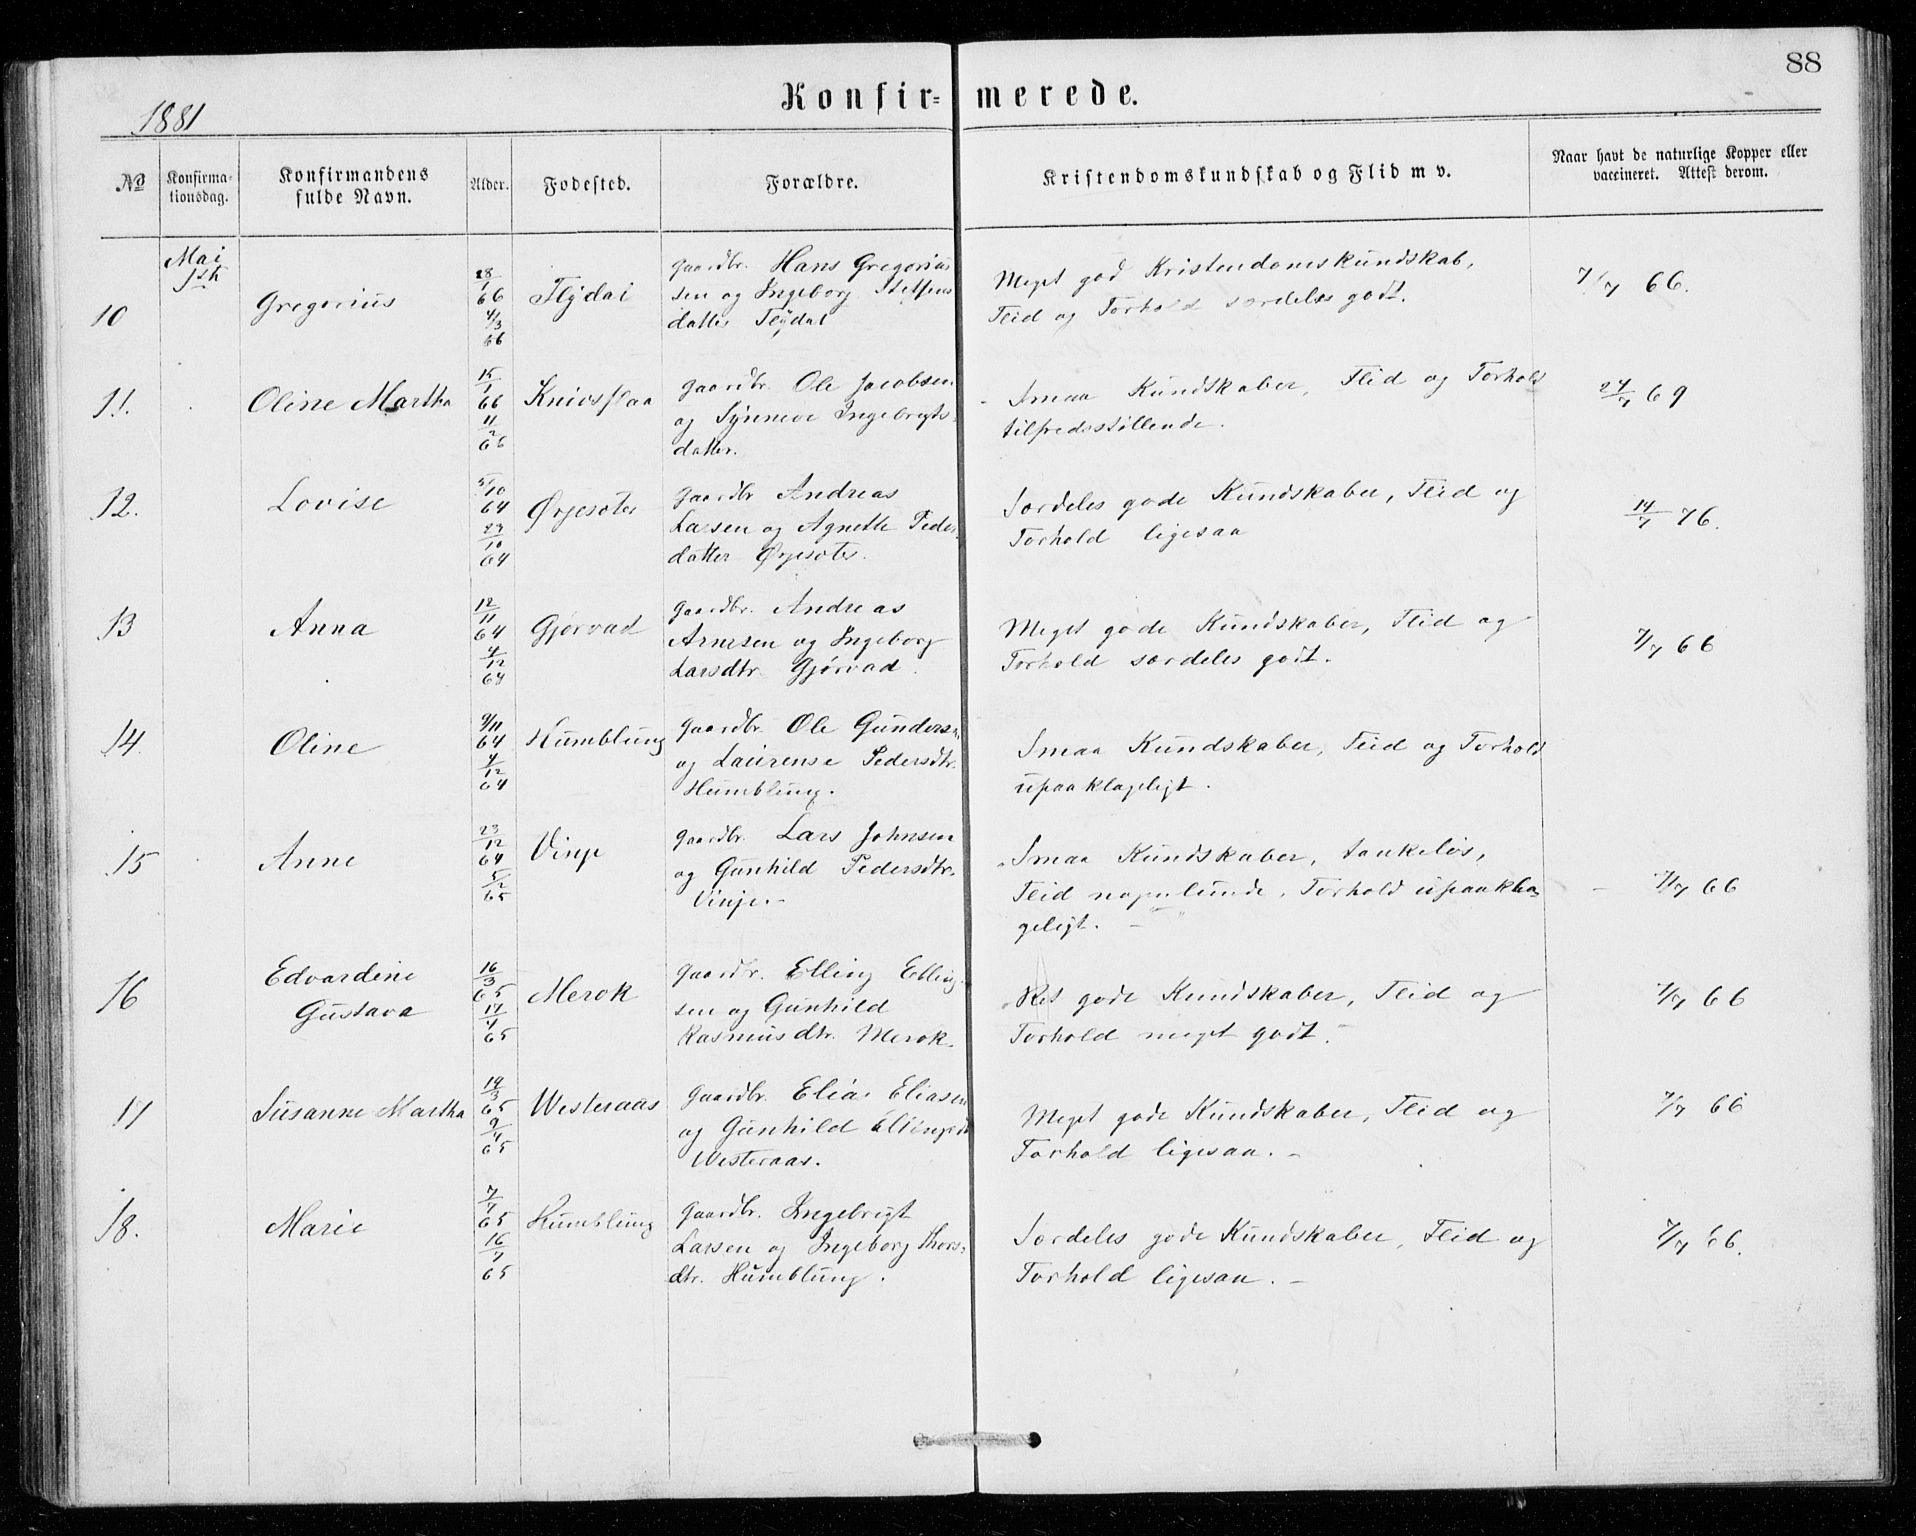 88
Konfir= merede.
1881
No
Konfirma-
tionsdag.
Konfirmandens
fulde Navn.
Alder.
Fodested.
Forældre.
Kristendomskundskab og Flid m v.
Naar havt de naturlige Kopper eller
vaccineret. Attest derom.
Mai
1ste
10 Gregorius 28/1 66 4/3 66 Flydal
gaardbr. Hans Gregorius
sen og Ingeborg Steffens
datter Flydal
Meget god Kristendomskundskab,
Flid og Forhold særdeles godt.
7/7 66.
11. Oline Martha 15/1 66 11/2 66 Knivsflaa
gaardbr. Ole Jacobsen
og Synneve Ingebrigts-
datter.
Smaa Kundskaber, Flid og Forhold
tilfredsstillende.
24/7 69
12. Lovise 5/10 64 23/10 64 Ørjesæter
gaardbr Andreas
Larsen og Agnette Peder-
datter Ørjesæter.
Særdeles gode Kundskaber, Flid og
Forhold ligesaa
14/7 76.
13 Anna 12/11 64 4/12 64 Gjørvad
gaardbr. Andreas
Arnesen og Ingeborg
Larsdtr. Gjørvad.
Meget gode Kundskaber, Flid og
Forhold særdeles godt.
7/7 66
14. Oline 9/11 64 4/12 64 Humblung
gaardbr. Ole Gunders.
og Laurense Pedersdtr.
Humblung.
Smaa Kundskaber, Flid og Forhold
upaaklageligt.
15 Anne 23/12 64 5/2 65 Vinje
gaardbr. Lars Johnsen
og Gunhild Pedersdtr.
Vinje. -
Smaa Kundskaber, tankeløs,
Flid nogenlunde, Forhold upaakla-
geligt. -
7/7 66
16 Edvardine
Gustava 16/3 65 17/4 65 Merok
gaardbr. Elling Elling-
sen og Gunhild
Rasmusdtr. Merok.
Ret gode Kundskaber, Flid og
Forhold meget godt. -
7/7 66
17 Susanne Martha 19/3 65 9/4 65 Westeraas
gaardbr. Elias Eliasen
og Gunhild
Westeraas.
Meget gode Kundskaber, Flid og
Forhold ligesaa. -
7/7 66
18. Marie 7/7 65 16/7 65 Humblung
gaardbr. Ingebrigt
Larsen og Ingeborg Thors-
dtr. Humblung.
Særdeles gode Kundskaber, Flid og
Forhold ligesaa. -
7/7 66.